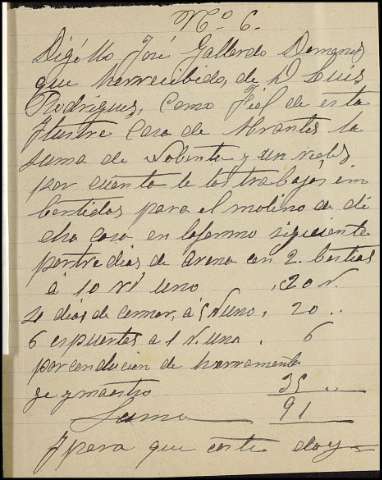 Nº 6.
Digo Yo José Gallardo Domones
que he recibido, de D Luis
Rodrígues, como Fiel de esta
Ilustre Casa de Abrantes la
suma de nobenta y un reales
por cuenta de los trabajos im
bertidos para el molino de di
cha casa en la forma siguiente
por tres dias de arena con 2. bestias
a 10 rs uno 20 r.
4 dias de a 5 r uno, 20 ..
6 espuertas a 1 r. una. 6
por conducion de herramenta
je y maestro 35 ..
Suma 91
Y para que coste doy